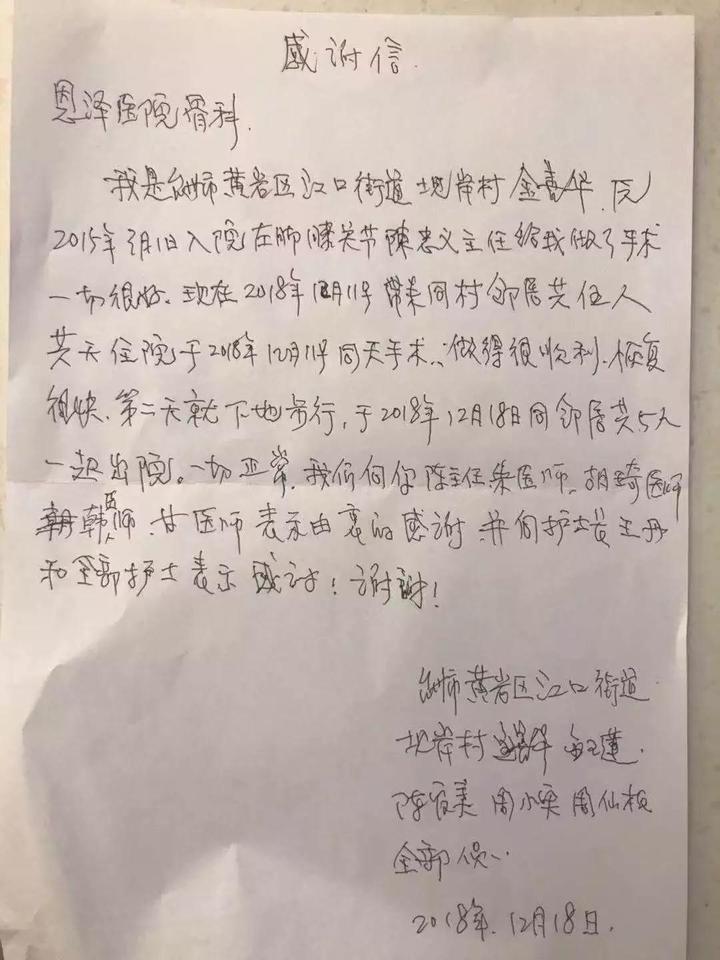 感谢信.
恩泽医院骨科.
我是台州市黄岩区江口街道 北岸村 金喜华.
2015年 入院左脚膝关节陈忠义主任给我做了手术
一切很好. 现在2018年12月11号 带来同村邻居共 人
住院于2018年12月11号同天手术. 做得很顺利. 恢复
很快. 第二天就下地步行, 于2018年12月18日同邻居共5人
一起出院。一切正常. 我们向你陈主任朱医师. 胡琦医师
韩医师. 甘医师 表示由衷的感谢. 并向护士长王丹
和全部护士表示 感谢! 谢谢!
台州市黄岩区江口街道
北岸村 金喜华
周小 周仙
全部
2018年.12月18日.